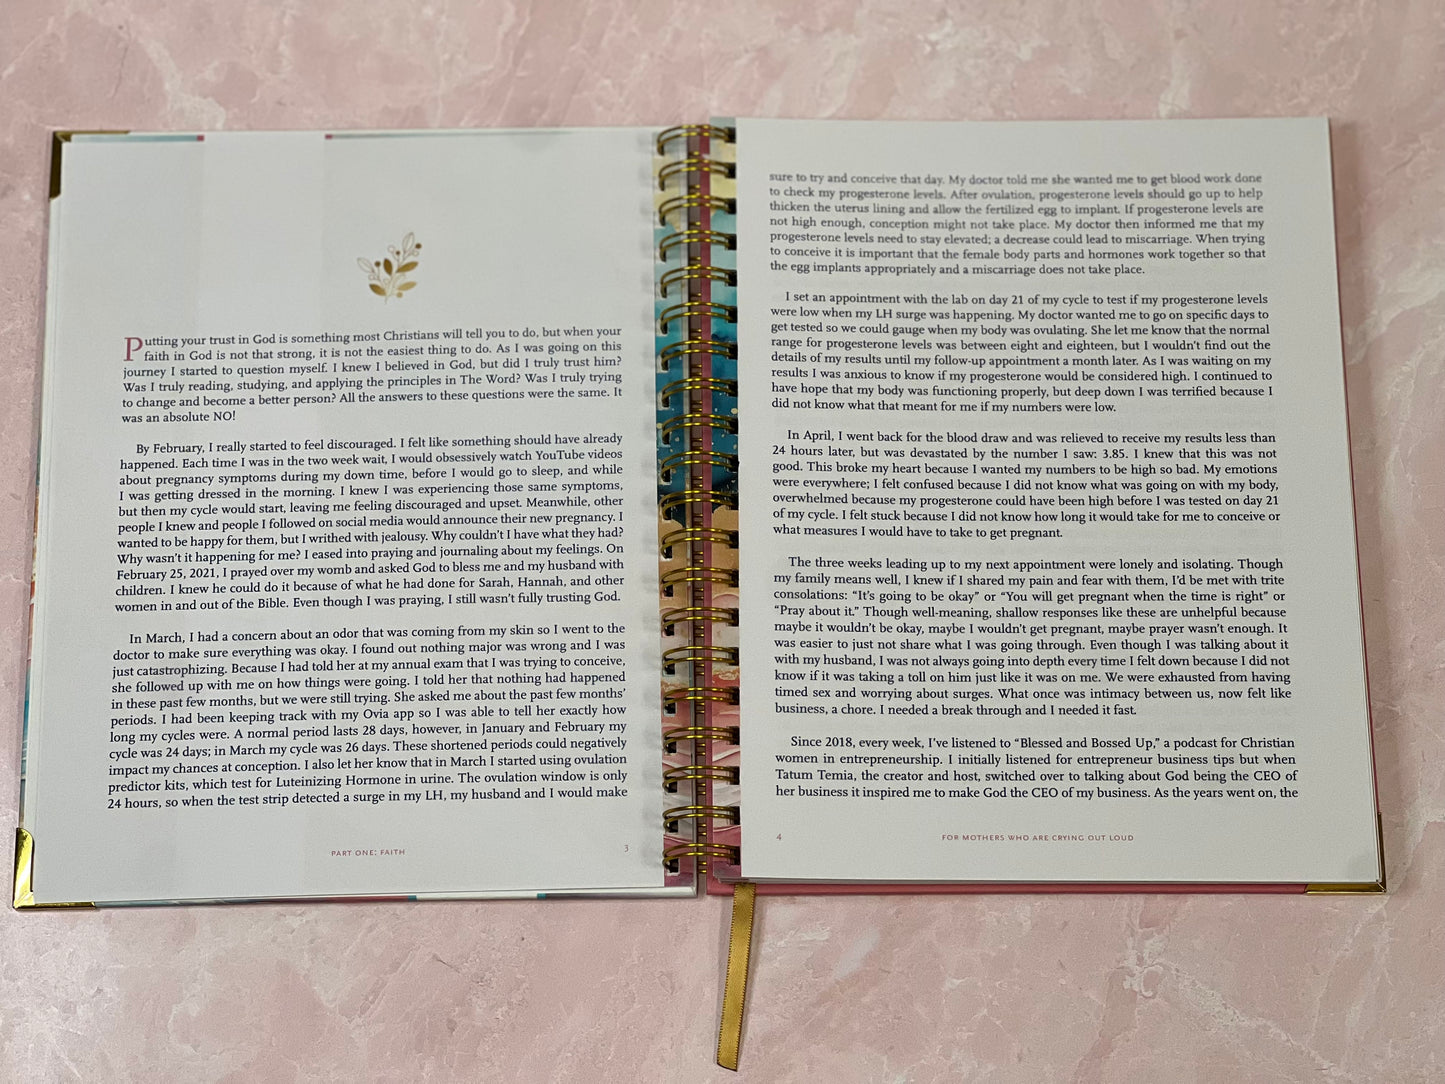 Putting your trust in God is something most Christians will tell you to do, but when your
faith in God is not that strong, it is not the easiest thing to do. As I was going on this
journey I started to question myself. I knew I believed in God, but did I truly trust him?
Was I truly reading, studying, and applying the principles in The Word? Was I truly trying
to change and become a better person? All the answers to these questions were the same. It
was an absolute NO!
By February, I really started to feel discouraged. I felt like something should have already
happened. Each time I was in the two week wait, I would obsessively watch YouTube videos
about pregnancy symptoms during my down time, before I would go to sleep, and while
I was getting dressed in the morning. I knew I was experiencing those same symptoms,
but then my cycle would start, leaving me feeling discouraged and upset. Meanwhile, other
people I knew and people I followed on social media would announce their new pregnancy. I
wanted to be happy for them, but I writhed with jealousy. Why couldn't I have what they had?
Why wasn't it happening for me? I eased into praying and journaling about my feelings. On
February 25, 2021, I prayed over my womb and asked God to bless me and my husband with
children. I knew he could do it because of what he had done for Sarah, Hannah, and other
women in and out of the Bible. Even though I was praying, I still wasn't fully trusting God.
In March, I had a concern about an odor that was coming from my skin so I went to the
doctor to make sure everything was okay. I found out nothing major was wrong and I was
just catastrophizing. Because I had told her at my annual exam that I was trying to conceive,
she followed up with me on how things were going. I told her that nothing had happened
in these past few months, but we were still trying. She asked me about the past few months'
periods. I had been keeping track with my Ovia app so I was able to tell her exactly how
long my cycles were. A normal period lasts 28 days, however, in January and February my
cycle was 24 days; in March my cycle was 26 days. These shortened periods could negatively
impact my chances at conception. I also let her know that in March I started using ovulation
predictor kits, which test for Luteinizing Hormone in urine. The ovulation window is only
24 hours, so when the test strip detected a surge in my LH, my husband and I would make
PART ONE: FAITH
3
sure to try and conceive that day. My doctor told me she wanted me to get blood work done
to check my progesterone levels. After ovulation, progesterone levels should go up to help
thicken the uterus lining and allow the fertilized egg to implant. If progesterone levels are
not high enough, conception might not take place. My doctor then informed me that my
progesterone levels need to stay elevated; a decrease could lead to miscarriage. When trying
to conceive it is important that the female body parts and hormones work together so that
the egg implants appropriately and a miscarriage does not take place.
I set an appointment with the lab on day 21 of my cycle to test if my progesterone levels
were low when my LH surge was happening. My doctor wanted me to go on specific days to
get tested so we could gauge when my body was ovulating. She let me know that the normal
range for progesterone levels was between eight and eighteen, but I wouldn't find out the
details of my results until my follow-up appointment a month later. As I was waiting on my
results I was anxious to know if my progesterone would be considered high. I continued to
have hope that my body was functioning properly, but deep down I was terrified because I
did not know what that meant for me if my numbers were low.
In April, I went back for the blood draw and was relieved to receive my results less than
24 hours later, but was devastated by the number I saw: 3.85. I knew that this was not
good. This broke my heart because I wanted my numbers to be high so bad. My emotions
were everywhere; I felt confused because I did not know what was going on with my body,
overwhelmed because my progesterone could have been high before I was tested on day 21
of my cycle. I felt stuck because I did not know how long it would take for me to conceive or
what measures I would have to take to get pregnant.
The three weeks leading up to my next appointment were lonely and isolating. Though
my family means well, I knew if I shared my pain and fear with them, I'd be met with trite
consolations: "It's going to be okay" or "You will get pregnant when the time is right" or
"Pray about it." Though well-meaning, shallow responses like these are unhelpful because
maybe it wouldn't be okay, maybe I wouldn't get pregnant, maybe prayer wasn't enough. It
was easier to just not share what I was going through. Even though I was talking about it
with my husband, I was not always going into depth every time I felt down because I did not
know if it was taking a toll on him just like it was on me. We were exhausted from having
timed sex and worrying about surges. What once was intimacy between us, now felt like
business, a chore. I needed a break through and I needed it fast.
Since 2018, every week, I've listened to "Blessed and Bossed Up," a podcast for Christian
women in entrepreneurship. I initially listened for entrepreneur business tips but when
Tatum Temia, the creator and host, switched over to talking about God being the CEO of
her business it inspired me to make God the CEO of my business. As the years went on, the
4
FOR MOTHERS WHO ARE CRYING OUT LOUD